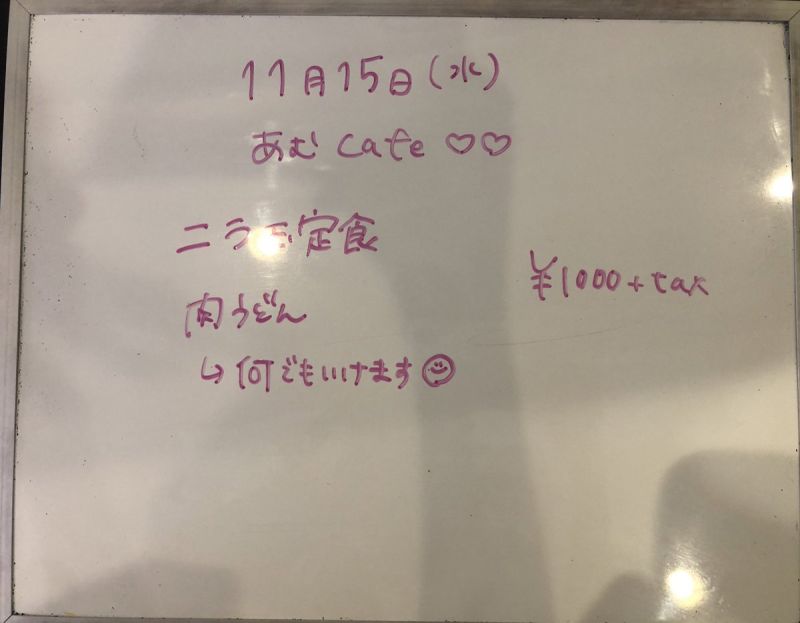 11月15日(水)
あむ cafe ♡♡
ニラ玉定食
¥1000+tax
肉うどん
↳何でもいけます☺